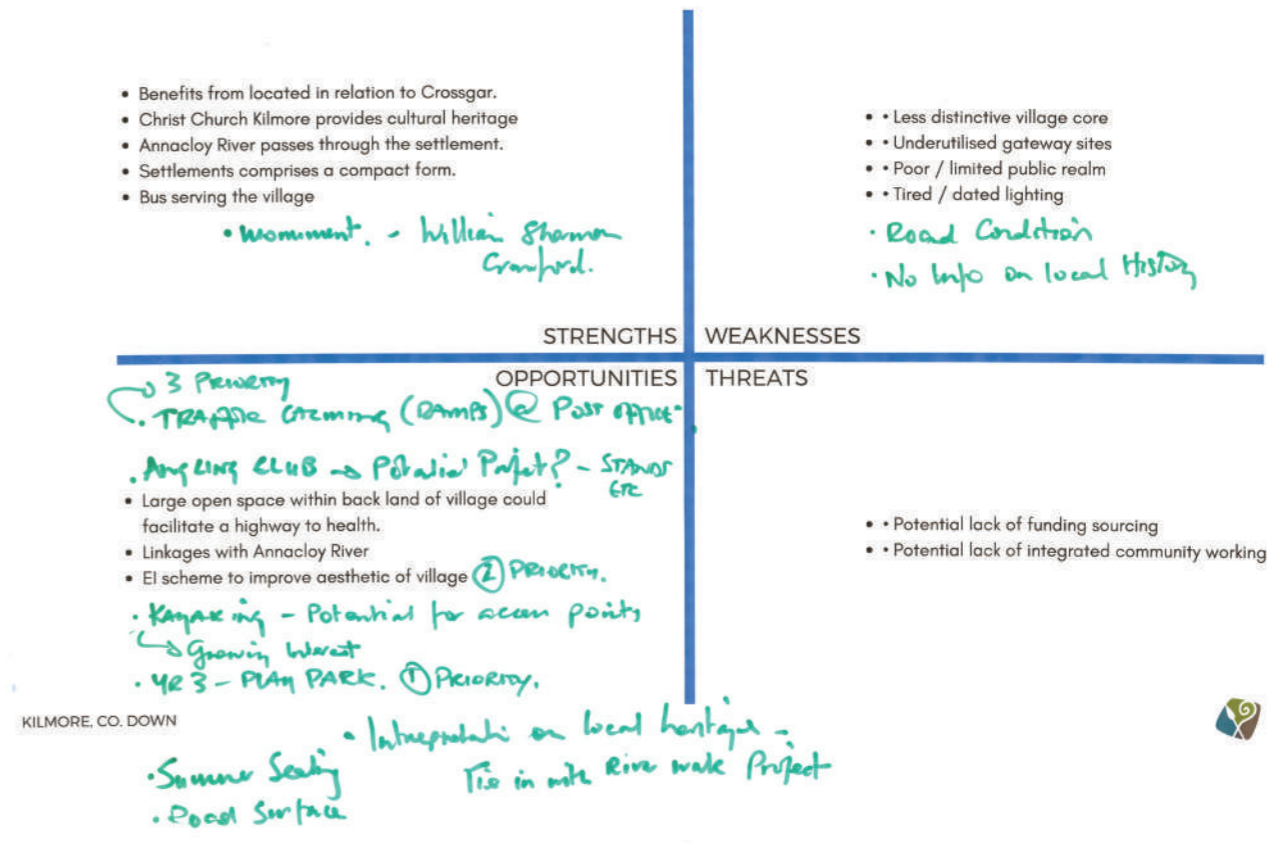 • Benefits from located in relation to Crossgar.
• Christ Church Kilmore provides cultural heritage
• Annacloy River passes through the settlement.
• Settlements comprises a compact form.
• Bus serving the village
• Monument. - William Sharman
Crawford.
STRENGTHS
• • Less distinctive village core
• • Underutilised gateway sites
• • Poor / limited public realm
• • Tired / dated lighting
• Road Condition
• No Info on local History
WEAKNESSES
OPPORTUNITIES
3 PRIORITY
• TRAFFIC CALMING (RAMPS) @ POST OFFICE
• ANGLING CLUB → Potential Project? - STANDS
ETC
• Large open space within back land of village could
facilitate a highway to health.
• Linkages with Annacloy River
• EI scheme to improve aesthetic of village ② PRIORITY.
• KAYAKING - Potential for access points
↳ Growing Interest
• YR 3 - PLAY PARK. ① PRIORITY.
THREATS
• • Potential lack of funding sourcing
• • Potential lack of integrated community working
KILMORE, CO. DOWN
• Interpretation on local heritage -
Tie in with River walk Project
• Summer Seating
• Road Surface